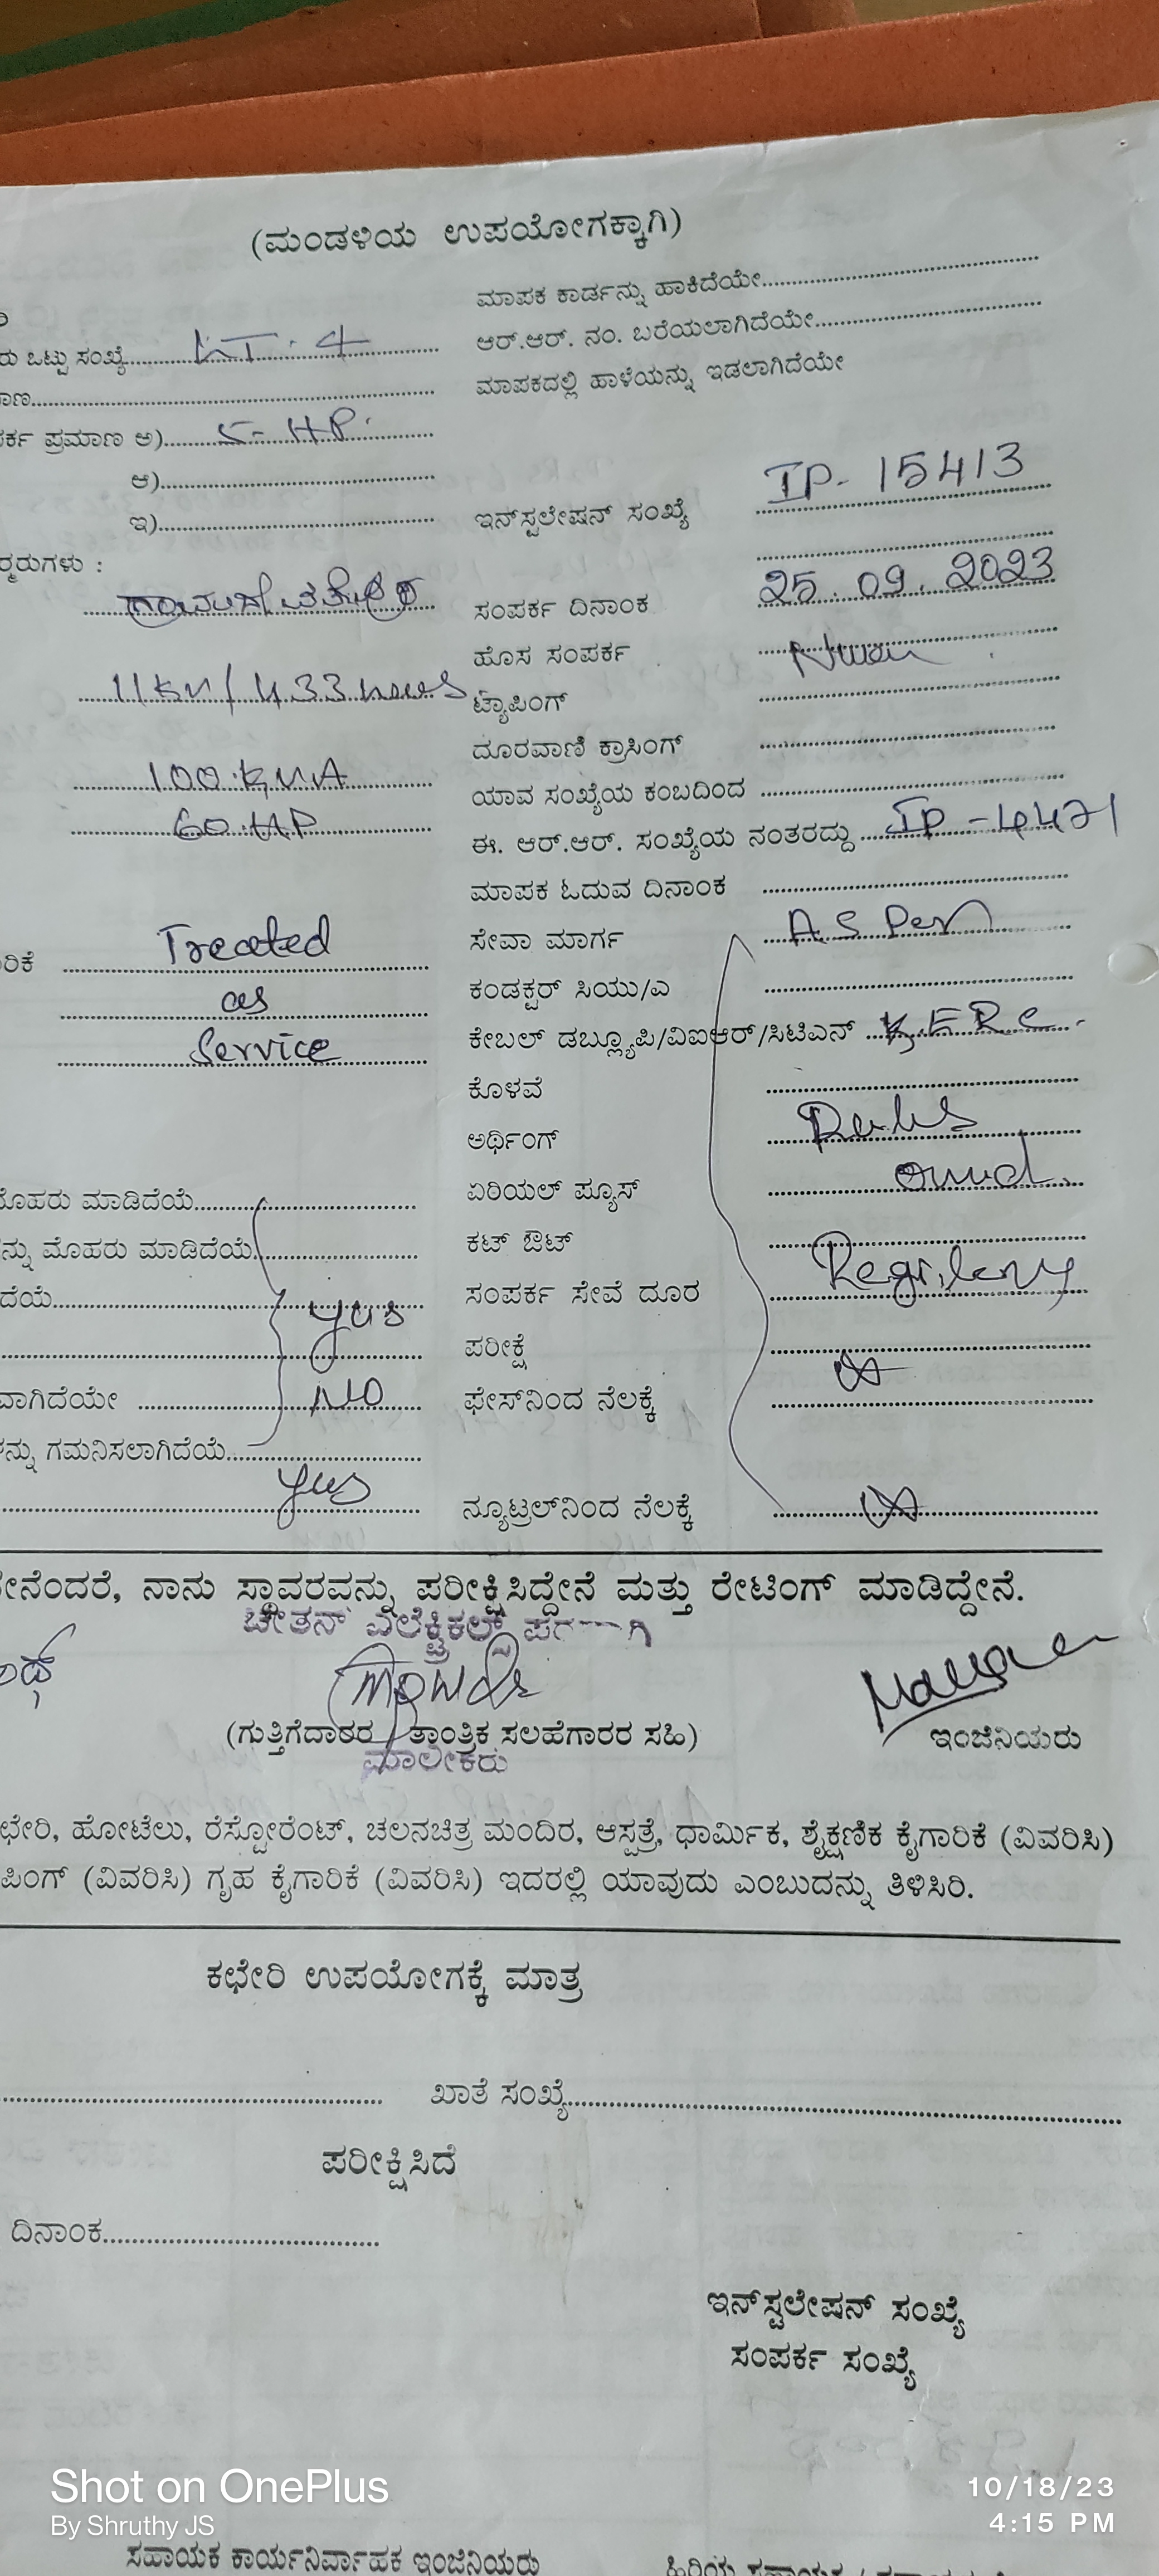 (ಮಂಡಳಿಯ ಉಪಯೋಗಕ್ಕಾಗಿ)
ಮಾಪಕ ಕಾರ್ಡನ್ನು ಹಾಕಿದೆಯೇ
ಒಟ್ಟು ಸಂಖ್ಯೆ LT-4
ಆರ್.ಆರ್. ನಂ. ಬರೆಯಲಾಗಿದೆಯೇ
ಮಾಪಕದಲ್ಲಿ ಹಾಳೆಯನ್ನು ಇಡಲಾಗಿದೆಯೇ
ಪ್ರಮಾಣ ಅ) 5-HP.
ಆ)
ಇ)
ಇನ್‌ಸ್ಟಲೇಷನ್ ಸಂಖ್ಯೆ IP-15413
ಸಂಪರ್ಕ ದಿನಾಂಕ 25.09.2023
ಹೊಸ ಸಂಪರ್ಕ
11KV/433
ಟ್ಯಾಪಿಂಗ್
ದೂರವಾಣಿ ಕ್ರಾಸಿಂಗ್
100 KVA
ಯಾವ ಸಂಖ್ಯೆಯ ಕಂಬದಿಂದ
60 HP
ಈ. ಆರ್.ಆರ್. ಸಂಖ್ಯೆಯ ನಂತರದ್ದು IP-4471
ಮಾಪಕ ಓದುವ ದಿನಾಂಕ
Treated
ಸೇವಾ ಮಾರ್ಗ As Per
as
ಕಂಡಕ್ಟರ್ ಸಿಯು/ಎ
Service
ಕೇಬಲ್ ಡಬ್ಲ್ಯೂಪಿ/ವಿಐಆರ್/ಸಿಟಿಎನ್ KERC
ಕೊಳವೆ
ಅರ್ಥಿಂಗ್
ಮೊಹರು ಮಾಡಿದೆಯೆ
ಏರಿಯಲ್ ಪ್ಯೂಸ್
ಮೊಹರು ಮಾಡಿದೆಯೆ
ಕಟ್ ಔಟ್
ಸಂಪರ್ಕ ಸೇವೆ ದೂರ
yes
ಪರೀಕ್ಷೆ
NO
ಫೇಸ್‌ನಿಂದ ನೆಲಕ್ಕೆ
ಗಮನಿಸಲಾಗಿದೆಯೆ
yes
ನ್ಯೂಟ್ರಲ್‌ನಿಂದ ನೆಲಕ್ಕೆ
ನಾನು ಸ್ಥಾವರವನ್ನು ಪರೀಕ್ಷಿಸಿದ್ದೇನೆ ಮತ್ತು ರೇಟಿಂಗ್ ಮಾಡಿದ್ದೇನೆ.
ಚೇತನ್ ಎಲೆಕ್ಟ್ರಿಕಲ್ಸ್
(ಗುತ್ತಿಗೆದಾರರ / ತಾಂತ್ರಿಕ ಸಲಹೆಗಾರರ ಸಹಿ)
ಇಂಜಿನಿಯರು
ಮಾಲೀಕರು
ಹೋಟೆಲು, ರೆಸ್ಟೋರೆಂಟ್, ಚಲನಚಿತ್ರ ಮಂದಿರ, ಆಸ್ಪತ್ರೆ, ಧಾರ್ಮಿಕ, ಶೈಕ್ಷಣಿಕ ಕೈಗಾರಿಕೆ (ವಿವರಿಸಿ)
(ವಿವರಿಸಿ) ಗೃಹ ಕೈಗಾರಿಕೆ (ವಿವರಿಸಿ) ಇದರಲ್ಲಿ ಯಾವುದು ಎಂಬುದನ್ನು ತಿಳಿಸಿರಿ.
ಕಛೇರಿ ಉಪಯೋಗಕ್ಕೆ ಮಾತ್ರ
ಖಾತೆ ಸಂಖ್ಯೆ
ಪರೀಕ್ಷಿಸಿದೆ
ದಿನಾಂಕ
ಇನ್‌ಸ್ಟಲೇಷನ್ ಸಂಖ್ಯೆ
ಸಂಪರ್ಕ ಸಂಖ್ಯೆ
Shot on OnePlus
By Shruthy JS
10/18/23
4:15 PM
ಸಹಾಯಕ ಕಾರ್ಯನಿರ್ವಾಹಕ ಇಂಜಿನಿಯರು